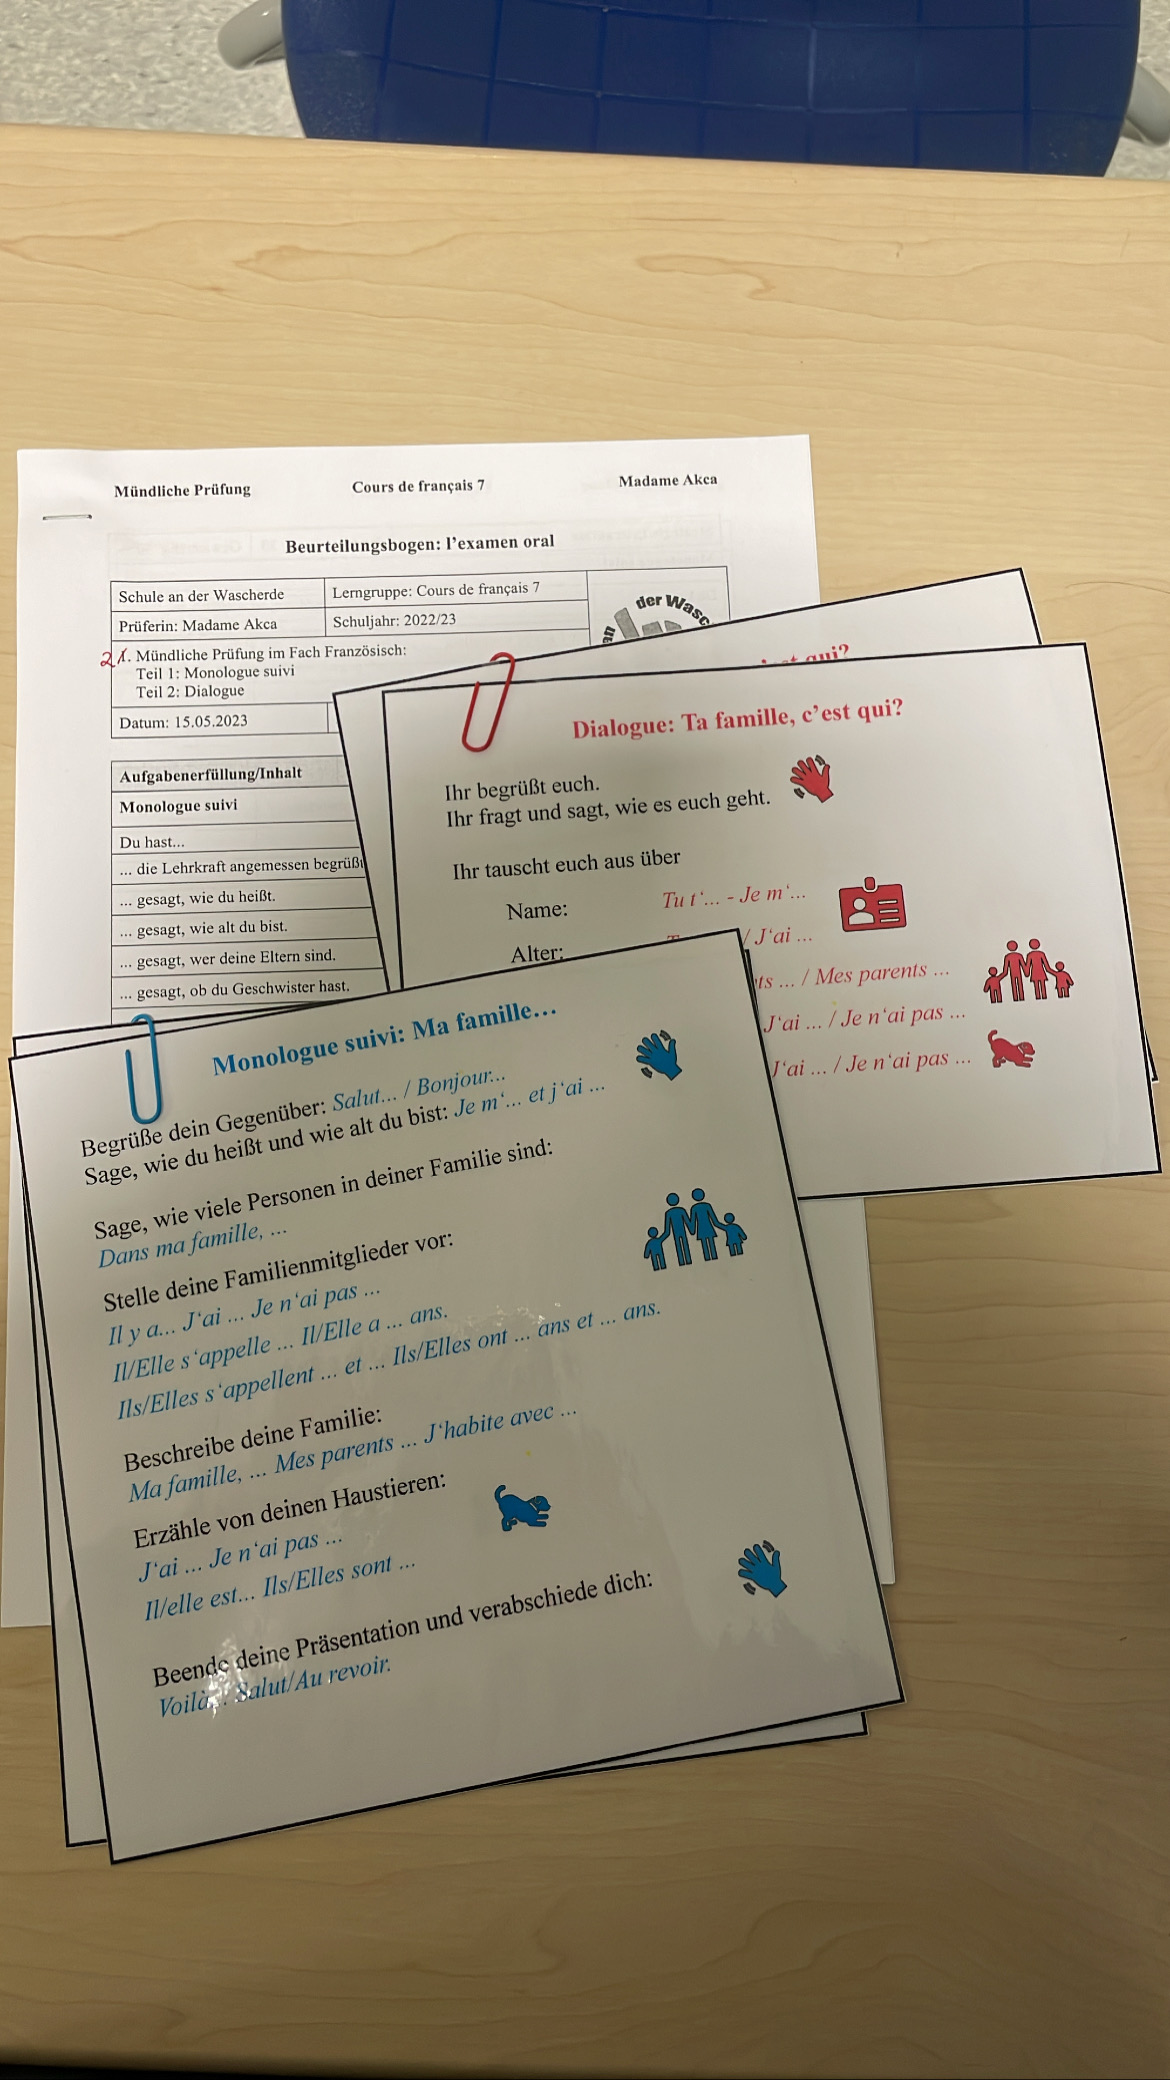 Mündliche Prüfung Cours de français 7 Madame Akca
Beurteilungsbogen: l'examen oral
Schule an der Wascherde Lerngruppe: Cours de français 7
Prüferin: Madame Akca Schuljahr: 2022/23
an der Wasc
2 1. Mündliche Prüfung im Fach Französisch:
Teil 1: Monologue suivi
Teil 2: Dialogue
Datum: 15.05.2023
Aufgabenerfüllung/Inhalt
Monologue suivi
Du hast...
... die Lehrkraft angemessen begrüßt
... gesagt, wie du heißt.
... gesagt, wie alt du bist.
... gesagt, wer deine Eltern sind.
... gesagt, ob du Geschwister hast.
qui?
Dialogue: Ta famille, c'est qui?
Ihr begrüßt euch.
Ihr fragt und sagt, wie es euch geht.
Ihr tauscht euch aus über
Name: Tu t'... - Je m'...
Alter: / J'ai ...
ts ... / Mes parents ...
J'ai ... / Je n'ai pas ...
J'ai ... / Je n'ai pas ...
Monologue suivi: Ma famille...
Begrüße dein Gegenüber: Salut... / Bonjour...
Sage, wie du heißt und wie alt du bist: Je m'... et j'ai ...
Sage, wie viele Personen in deiner Familie sind:
Dans ma famille, ...
Stelle deine Familienmitglieder vor:
Il y a... J'ai ... Je n'ai pas ...
Il/Elle s'appelle ... Il/Elle a ... ans.
Ils/Elles s'appellent ... et ... Ils/Elles ont ... ans et ... ans.
Beschreibe deine Familie:
Ma famille, ... Mes parents ... J'habite avec ...
Erzähle von deinen Haustieren:
J'ai ... Je n'ai pas ...
Il/elle est... Ils/Elles sont ...
Beende deine Präsentation und verabschiede dich:
Voilà... Salut/Au revoir.